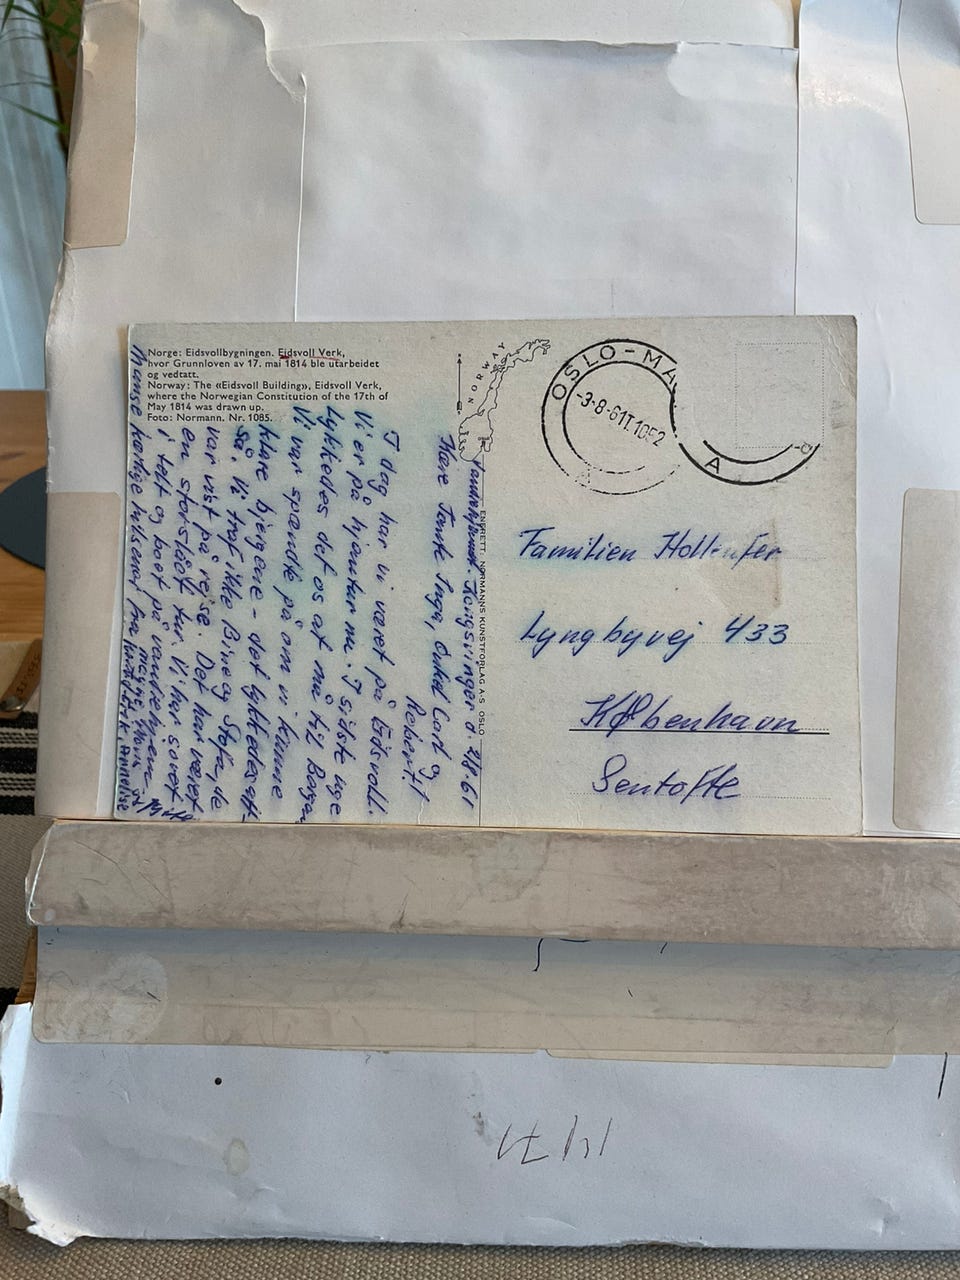 Norge: Eidsvollbygningen. Eidsvoll Verk,
hvor Grunnloven av 17. mai 1814 ble utarbeidet
og vedtatt.
Norway: The «Eidsvoll Building», Eidsvoll Verk,
where the Norwegian Constitution of the 17th of
May 1814 was drawn up.
Foto: Normann. Nr. 1085.
Kongsvinger d. 2/8 61
Kære Tante Inga, Onkel Carl og
Robert!
I dag har vi været på Eidsvoll.
Vi er på hjemtur nu. I sidste uge
lykkedes det os at nå til Bergen
Vi var spændte på om vi kunne
klare bjergene - det lykkedes
så. Vi traf ikke Bine og de
var vist på rejse. Det har været
en storslået tur. Vi har sovet
i telt og boet på vandrehjem
Mange hilsener fra
NORWAY
ENERETT: NORMANNS KUNSTFORLAG A-S OSLO
OSLO-MA
-3-8-61
A
Familien
Lyngbyvej 433
København
Gentofte